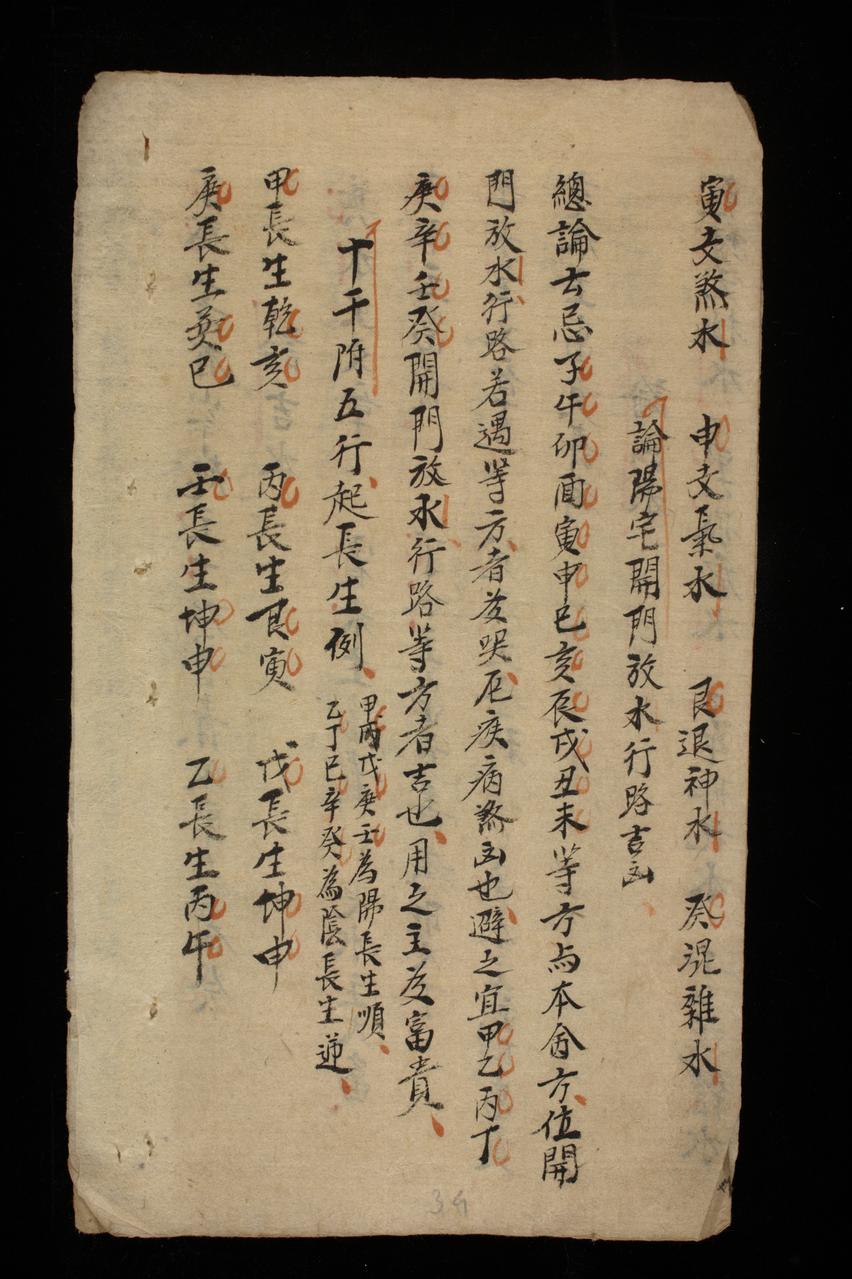 寅文煞水　申文氣水　艮退神水　癸混雜水
論陽宅開門放水行路吉凶
總論云忌子午卯酉寅申巳亥辰戌丑未等方与本命方位開
門放水行路若遇等方者及哭厄疾病煞凶也避之宜甲乙丙丁
庚辛壬癸開門放水行路等方者吉也用之主及富貴
十干附五行起長生例
甲丙戊庚壬為陽長生順
乙丁巳辛癸為陰長生逆
甲長生乾亥　丙長生艮寅　戊長生坤申
庚長生巽巳　壬長生坤申　乙長生丙午
34